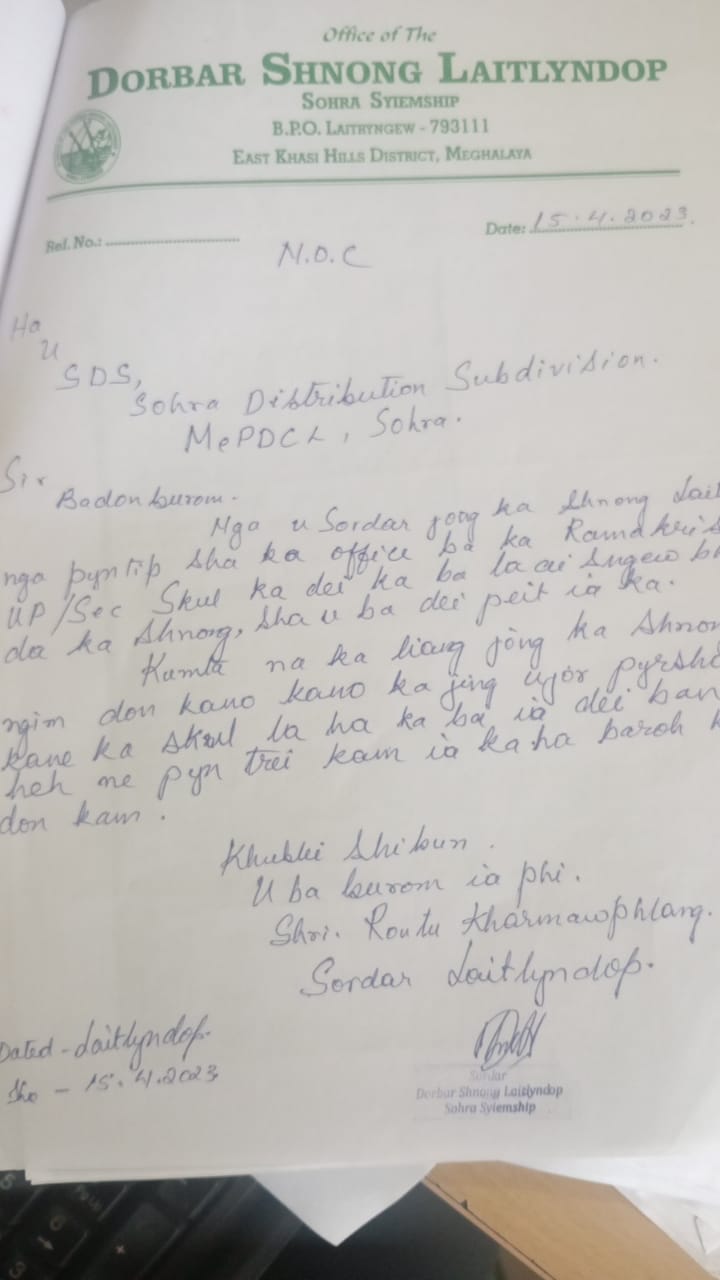 Office of The
DORBAR SHNONG LAITLYNDOP
SOHRA SYIEMSHIP
B.P.O. LAITRYNGEW - 793111
EAST KHASI HILLS DISTRICT, MEGHALAYA
Ref. No.: ........................ Date: 15.4.2023.
N.O.C
Ha
U
SDS,
Sohra Distribution Subdivision.
MePDCL, Sohra.
Sir
Badonburom.
Nga u Sordar jong ka Shnong Lait
nga pyntip sha ka office ba ka Ramakris
UP/Sec Skul ka dei ka ba la ai Sngew
da ka Shnong, sha u ba dei peit ia ka.
Kumta na ka liang jong ka Shnon
ngim don kano kano ka jing ujor pyrsh
kane ka Skul la ha ka ba ia dei ban
heh ne pyn trei kam ia ka ha baroh
don kam.
Khublei Shibun.
U ba burom ia phi.
Shri. Routu Kharmawphlang.
Sordar Laitlyndop.
Dated - Laitlyndop
15.4.2023
Sordar
Dorbar Shnong Laitlyndop
Sohra Syiemship